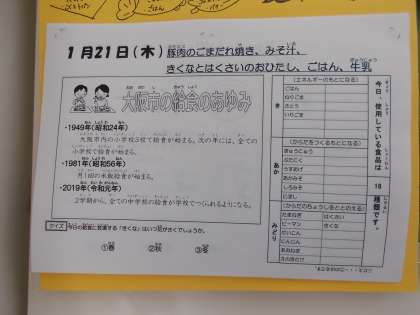 1月21日(木) 豚肉のごまだれ焼き、みそ汁、
きくなとはくさいのおひたし、ごはん、牛乳
大阪市の給食のあゆみ
・1949年(昭和24年)
大阪市内の小学校5校で給食が始まる。次の年には、全ての
小学校で給食が始まる。
・1981年(昭和56年)
月1回の米飯給食が始まる。
・2019年(令和元年)
2学期から、全ての中学校の給食が学校でつくられるようになる。
クイズ 今日の給食に登場する「きくな」はいつ旬がきくでしょうか。
①春 ②秋 ③冬
今日、使用している食品は
18
種類です。
き
(エネルギーのもとになる)
ごはん
ねりごま
さとう
いりごま
あか
(からだをつくるもとになる)
ぎゅうにゅう
ぶたにく
うすあげ
あかみそ
しろみそ
にぼし
みどり
(からだのちょうしをととのえる)
たまねぎ はくさい
ピーマン きくな
だいこん
にんじん
あおねぎ